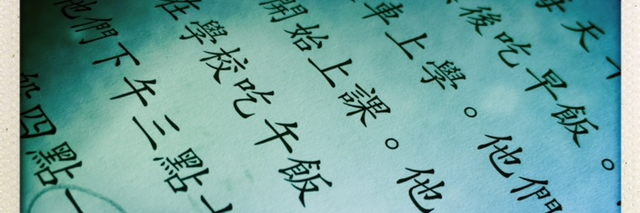 每天
後吃早飯。
車上學。他們
開始上課。他
在學校吃午飯
他們下午三點
四點